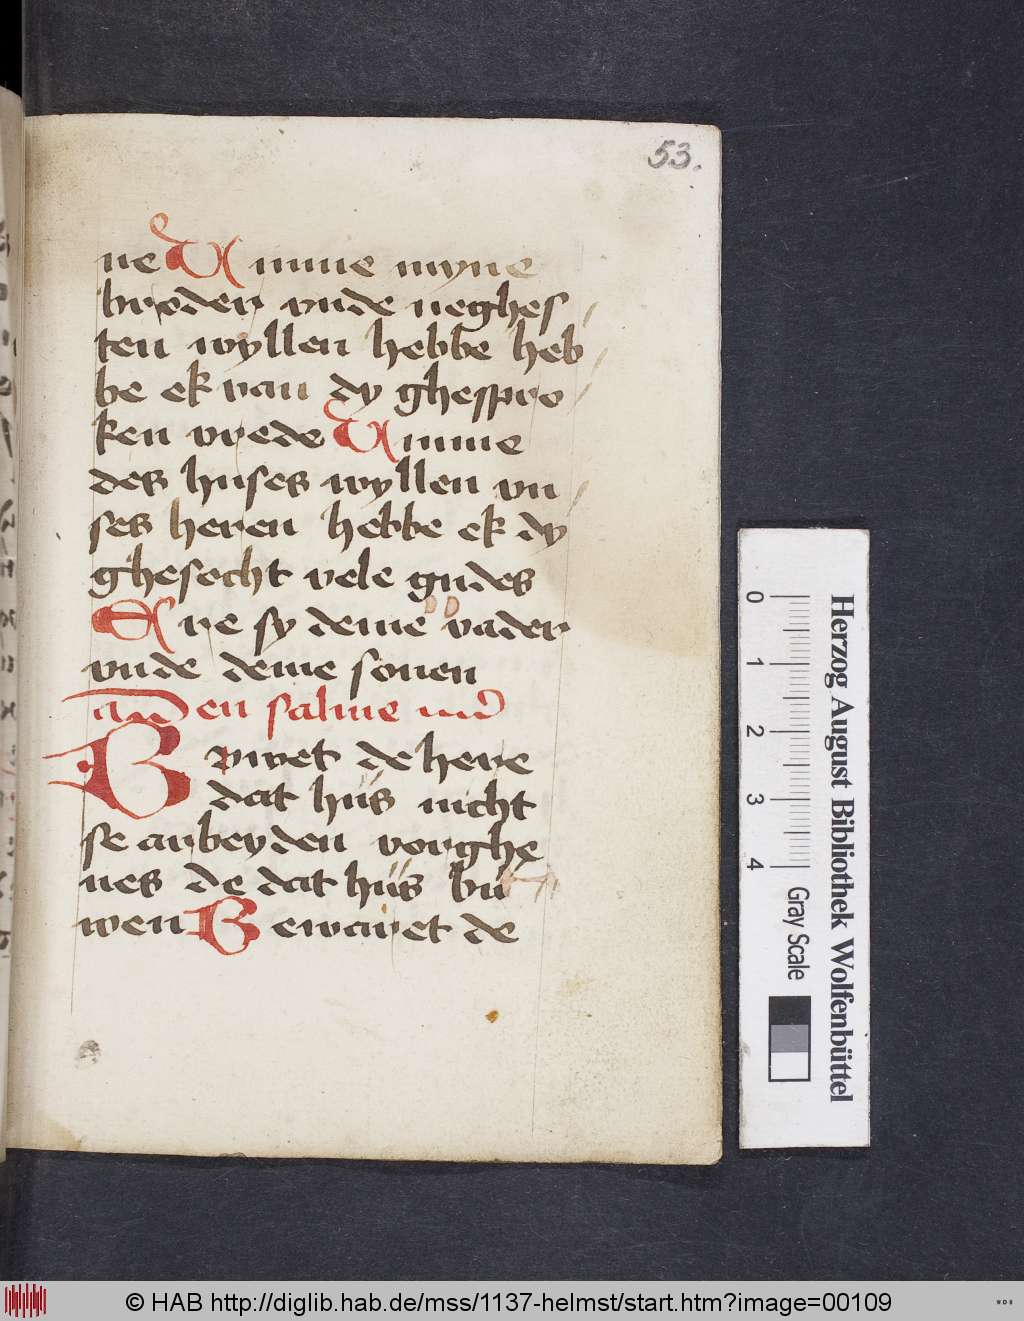 53.
ne Umme myne
broder vnde neghes
ten wyllen hebbe heb
be ek van dy ghespro
ken vrede Umme
des huses wyllen vn
ses heren hebbe ek dy
ghesocht vele gudes
Ere sy deme vader
vnde deme sonen
salme
Buwet de here
dat hus nicht
se arbeyden vorghe
nes de dat hus bu
wen Bewaret de
Herzog August Bibliothek Wolfenbüttel
0 1 2 3 4 Gray Scale
© HAB http://diglib.hab.de/mss/1137-helmst/start.htm?image=00109